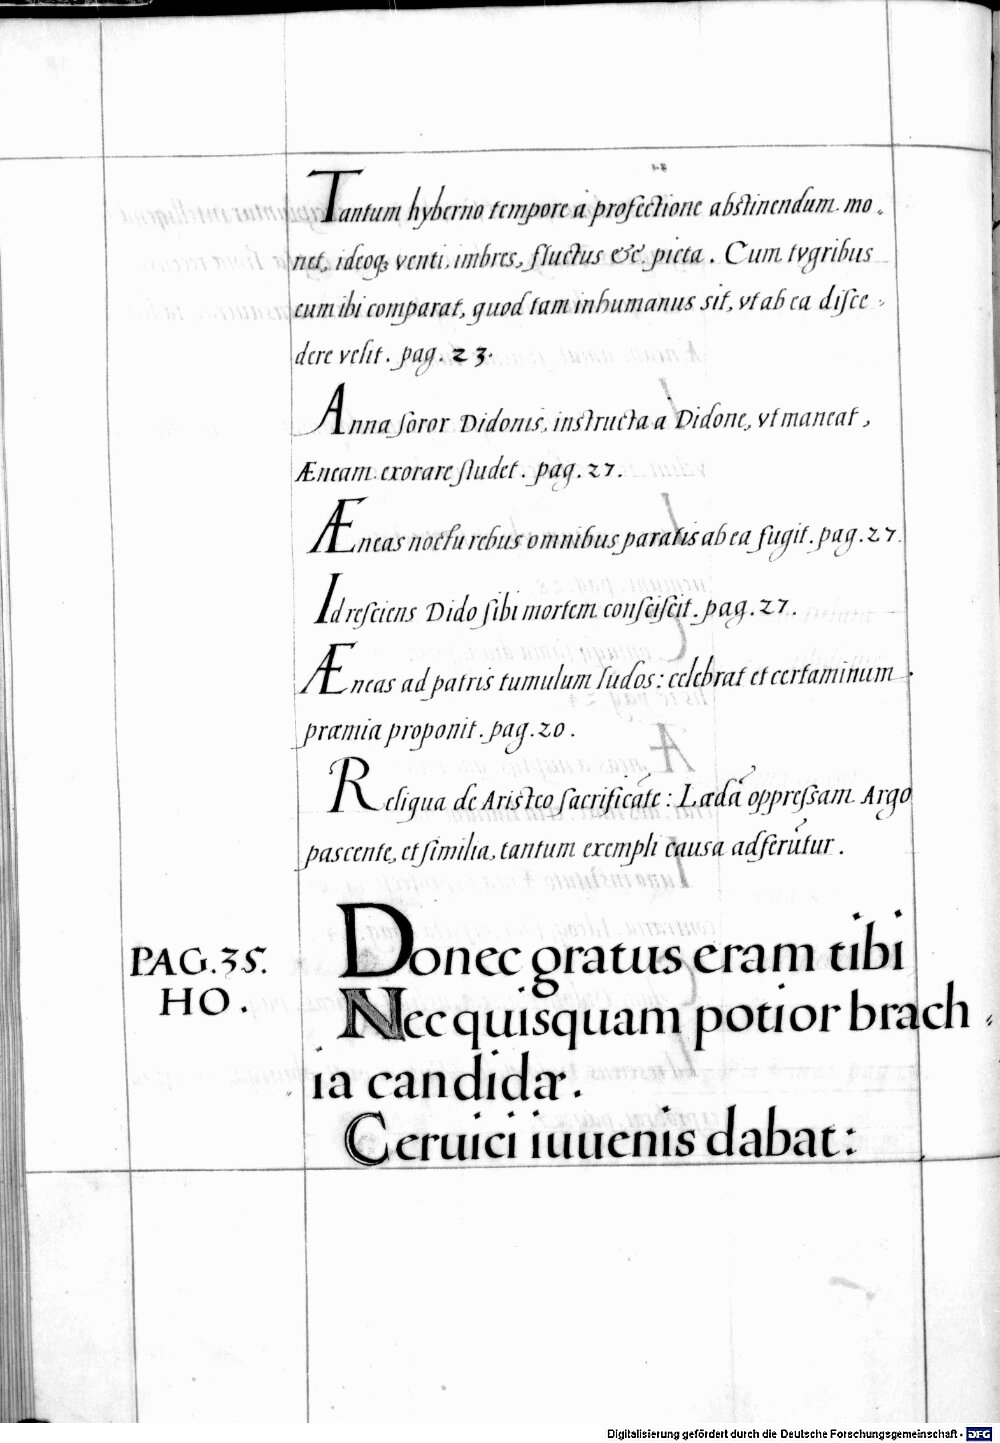 Tantum hyberno tempore à profectione abstinendum mo-
net, ideoq; venti, imbres, fluctus &c picta. Cum tygribus
eum ibi comparat, quod tam inhumanus sit, vt ab ea disce-
dere velit. pag. 23.
Anna soror Didonis, instructa a Didone, vt maneat,
Æneam exorare studet. pag. 27.
Æneas noctu rebus omnibus paratis ab ea fugit. pag. 27.
Id resciens Dido sibi mortem consciscit. pag. 27.
Æneas ad patris tumulum ludos: celebrat et certaminum
præmia proponit. pag. 20.
Reliqua de Aristeo sacrificāte: Lædā oppressam Argo
pascente, et similia, tantum exempli causa adferūtur.
Donec gratus eram tibi
PAG. 35.
HO.
Nec quisquam potior brach-
ia candidæ.
Ceruici iuuenis dabat:
Digitalisierung gefördert durch die Deutsche Forschungsgemeinschaft - DFG